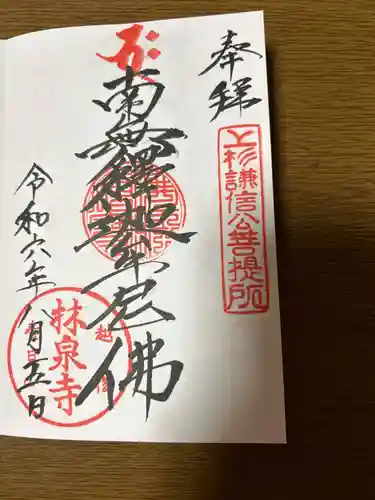 奉拝
上杉謙信公菩提所
南無釋迦牟尼佛
令和六年八月五日
林泉寺